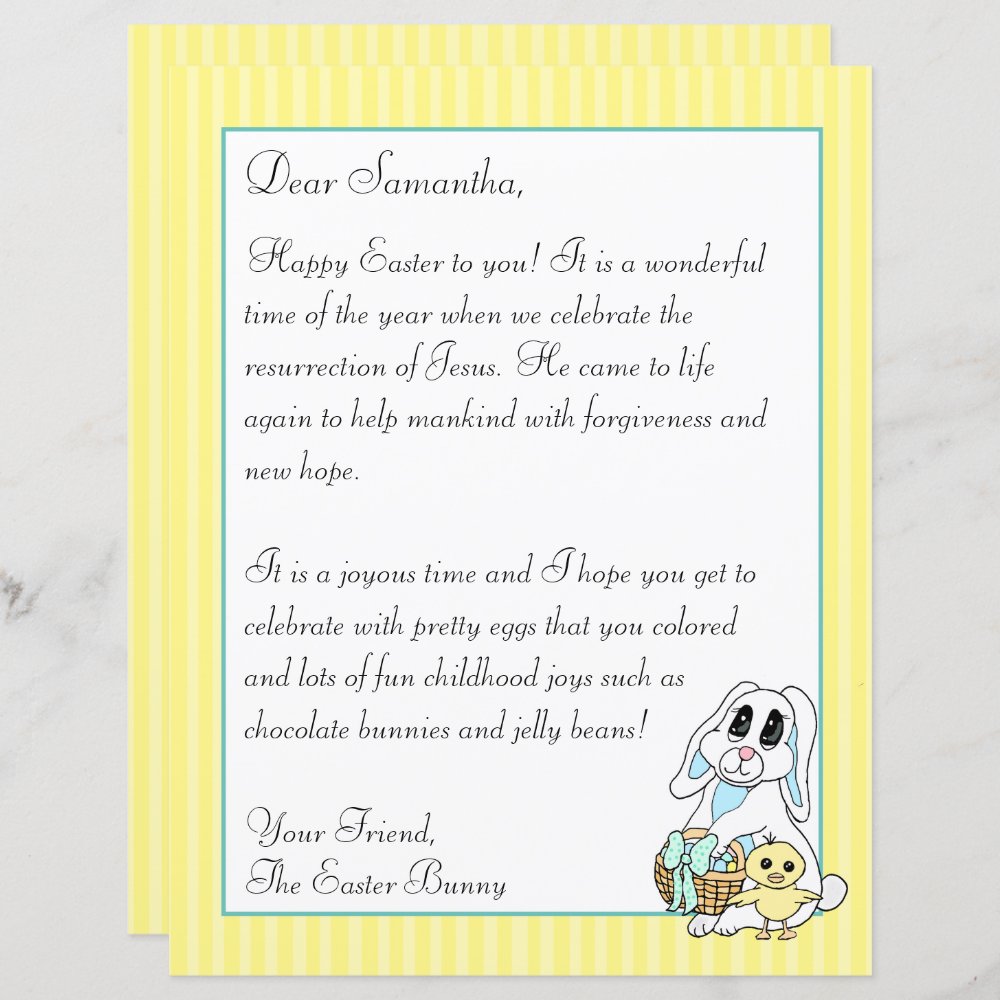 Dear Samantha,
Happy Easter to you! It is a wonderful
time of the year when we celebrate the
resurrection of Jesus. He came to life
again to help mankind with forgiveness and
new hope.
It is a joyous time and I hope you get to
celebrate with pretty eggs that you colored
and lots of fun childhood joys such as
chocolate bunnies and jelly beans!
Your Friend,
The Easter Bunny